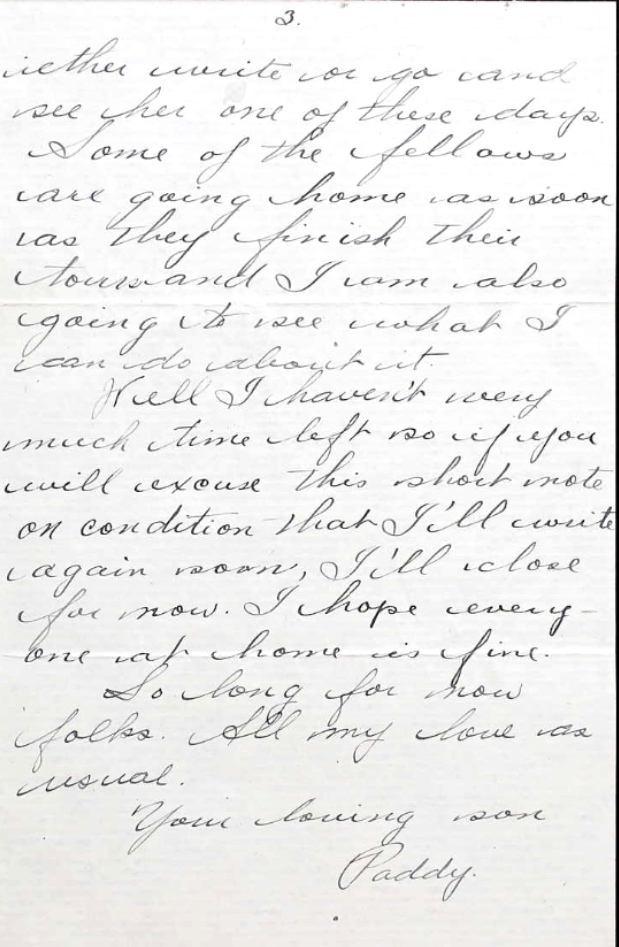 3.
iether write or go and
see her one of these days.
Some of the fellows
are going home as soon
as they finish their
tours and I am also
going to see what I
can do about it.
Well I haven't very
much time left so if you
will excuse this short note
on condition that I'll write
again soon, I'll close
for now. I hope every-
one at home is fine.
So long for now
folks. All my love as
usual.
Your loving son
Paddy.